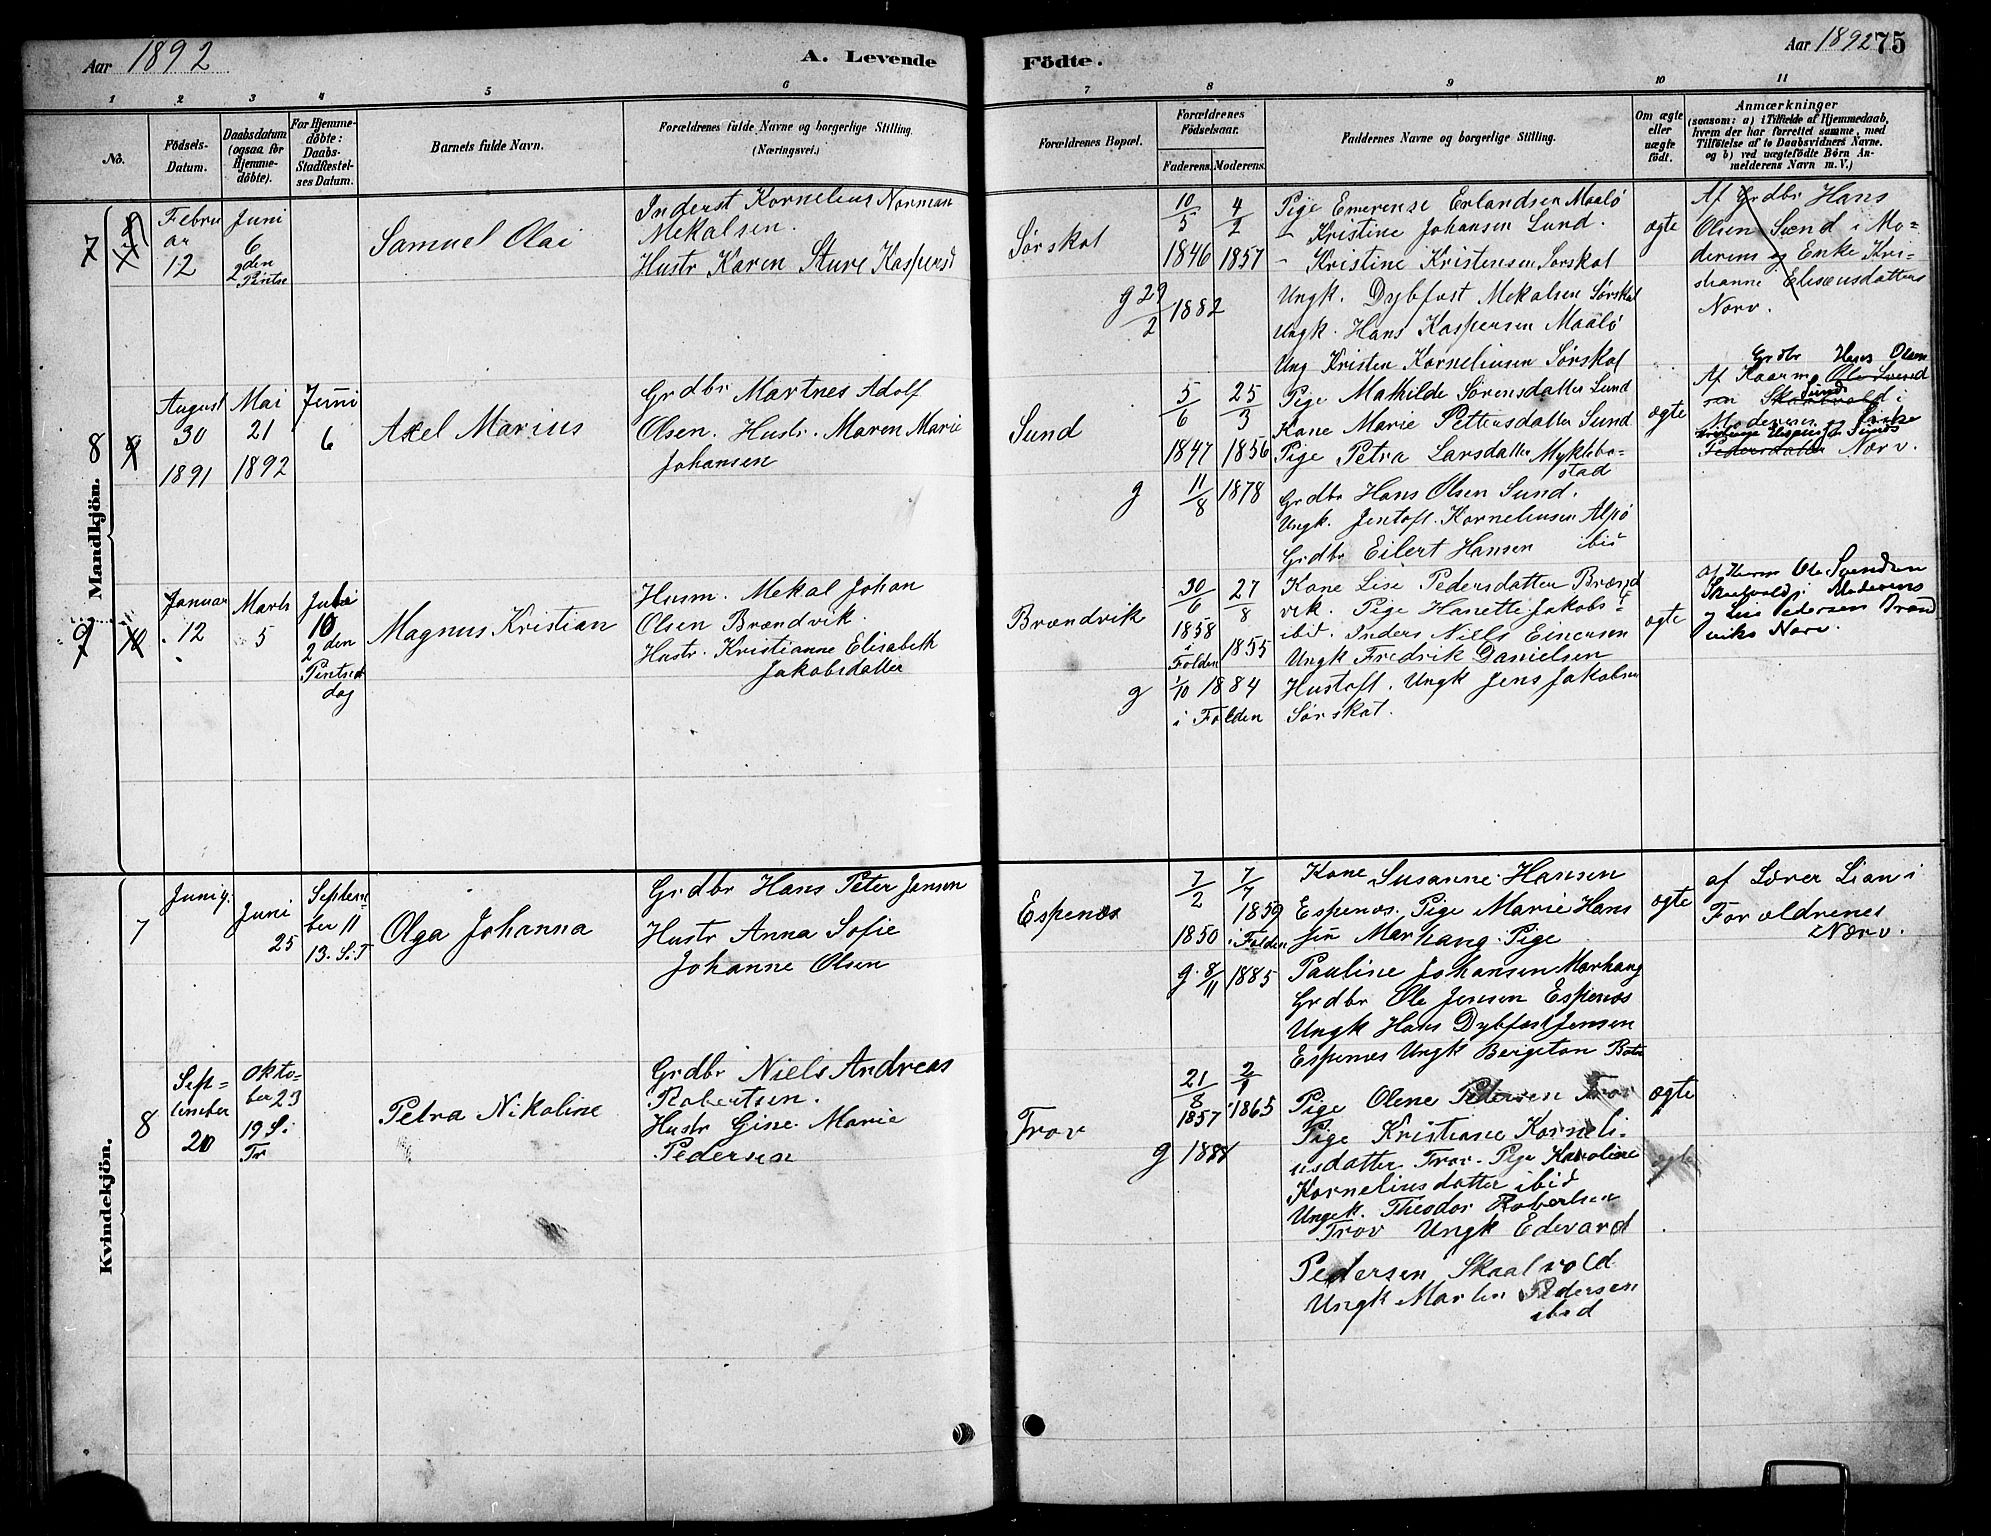 Aar 1892
A. Levende
Födte.
Aar 1892
75
1
2
3
4
5
6
7
8
9
10
11
No.
Födsels-
Datum.
Daabsdatum
(ogsaa for
Hjemme-
döbte).
For Hjemme-
döbte:
Daabs-
Stadfæstel-
ses Datum.
Barnets fulde Navn.
Forældrenes fulde Navne og borgerlige Stilling.
(Næringsvei.)
Forældrenes Bopæl.
Forældrenes
Födselsaar.
Faderens.
Moderens.
Faddernes Navne og borgerlige Stilling.
Om ægte
eller
uægte
födt.
Anmærkninger
(saasom: a) i Tilfælde af Hjemmedaab,
hvem der har forrettet samme, med
Tilföielse af to Daabsvidners Navne.
og b) ved uægtefödte Börn An-
melderens Navn m. V.)
Mandkjön.
7
Febru
ar
12
Juni
6
2den
Pintse
Samuel Olai
Inderst Kornelius Norman
Mekalsen.
Hustr Karen Sture Kaspersd
Sørskot
10/5
1846
4/2
1857
g 29/2 1882
Pige Emerense Erlandsen Maalø
- Kristine Johansen Lund.
- Kristine Kristensen Sørskot
Ungk. Dybfast Mekalsen Sørskot
Ungk. Hans Kaspersen Maalø
Ung Kristen Korneliusen Sørskot
ægte
Af Grdbr Hans
Olsen Sund i Mo-
derens og Enke Kri-
stianne Eliseusdatters
Nærv.
8
August
30
1891
Mai
21
1892
Juni
6
Axel Marius
Grdbr Martnes Adolf
Olsen. Hustr. Maren Marie
Johansen
Sund
5/6
1847
25/3
1856
g 11/8 1878
Pige Mathilde Sørensdatter Sund
Kone Marie Pettersdatter Sund
Pige Petra Larsdatter Myklebo-
stad
Grdbr Hans Olsen Sund.
Ungk. Jentoft Korneliusen Alpø
Grdbr Eilert Hansen ibid
ægte
Grdbr Hans Olsen
Af Kaarm Ole Svend
sen Skaalvold i
Sund
Moderens og Enke
Pedersdatter Nærv.
9
Januar
12
Marts
5
Juni
10
2den
Pintsed
dag
Magnus Kristian
Husm. Mekal Johan
Olsen Brændvik.
Hustr. Kristianne Elisabeth
Jakobsdatter
Brændvik
30/6
1858
i
Folden
27/8
1855
g 1/10 1884
i Folden
Kone Lise Pedersdatter Brænd
vik. Pige Hanette Jakobs-
ibid. Inders Niels Einersen
Ungk Fredrik Danielsen
Hustoft. Ungk Jens Jakobsen
Sørskot.
ægte
af Husm Ole Svendsen
Skaalvold i Moderens
og Lise Pedersen Brænd
viks Nærv.
Kvindekjön.
7
Juni 9.
Juni
25
Septem-
ber 11
13. S. T
Olga Johanna
Grdbr Hans Peter Jensen
Hustr Anna Sofie
Johanne Olsen
Espenæs
7/2
1850
7/7
1859
i Folden
g. 8/11 1885
Kone Susanne Hansen
Espenæs. Pige Marie Hans
sen Marhaug. Pige
Pauline Johansen Marhaug
Grdbr Ole Jensen Espenæs
Ungk Hans Dybfast Jensen
Espenæs Ungk Bergeton
ægte
af Lærer Lian i
Forældrenes
Nærv.
8
Sep-
tember
20
Okto-
ber 23
19 S.
Tr
Petra Nikoline
Grdbr Niels Andreas
Robertsen.
Hustr Gine Marie
Pedersen
Trov
21/8
1857
1865
g 1888
Pige Olene Pedersen Trov
Pige Kristiane Korneli-
usdatter Trov. Pige Karoline
Korneliusdatter ibid
Ungk. Theodor Robertsen
Trov Ungk Edevard
Pedersen Skaalvold
Ungk Martin Pedersen
ibid
ægte
ægte